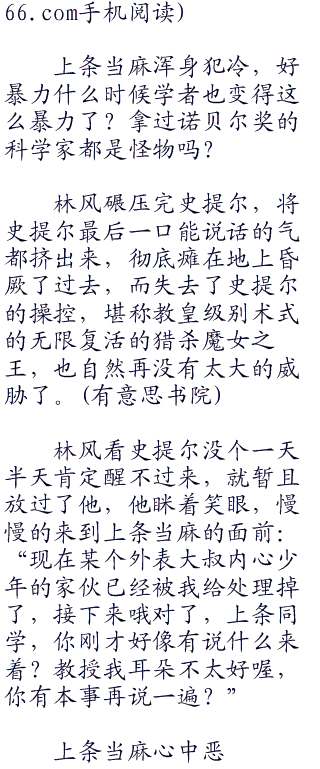 66.com手机阅读)
上条当麻浑身犯冷，好
暴力什么时候学者也变得这
么暴力了？拿过诺贝尔奖的
科学家都是怪物吗？
林风碾压完史提尔，将
史提尔最后一口能说话的气
都挤出来，彻底瘫在地上昏
厥了过去，而失去了史提尔
的操控，堪称教皇级别术式
的无限复活的猎杀魔女之
王，也自然再没有太大的威
胁了。(有意思书院)
林风看史提尔没个一天
半天肯定醒不过来，就暂且
放过了他，他眯着笑眼，慢
慢的来到上条当麻的面前：
“现在某个外表大叔内心少
年的家伙已经被我给处理掉
了，接下来哦对了，上条同
学，你刚才好像有说什么来
着？教授我耳朵不太好喔，
你有本事再说一遍？”
上条当麻心中恶